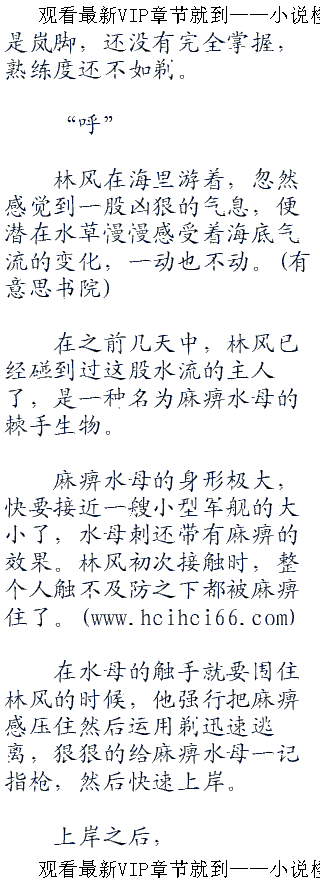 观看最新VIP章节就到——小说检
是岚脚，还没有完全掌握，
熟练度还不如剃。
“呼”
林风在海里游着，忽然
感觉到一股凶狠的气息，便
潜在水草慢慢感受着海底气
流的变化，一动也不动。(有
意思书院)
在之前几天中，林风已
经碰到过这股水流的主人
了，是一种名为麻痹水母的
棘手生物。
麻痹水母的身形极大，
快要接近一艘小型军舰的大
小了，水母刺还带有麻痹的
效果。林风初次接触时，整
个人触不及防之下都被麻痹
住了。(www.hcihci66.com)
在水母的触手就要围住
林风的时候，他强行把麻痹
感压住然后运用剃迅速逃
离，狠狠的给麻痹水母一记
指枪，然后快速上岸。
上岸之后，
观看最新VIP章节就到——小说